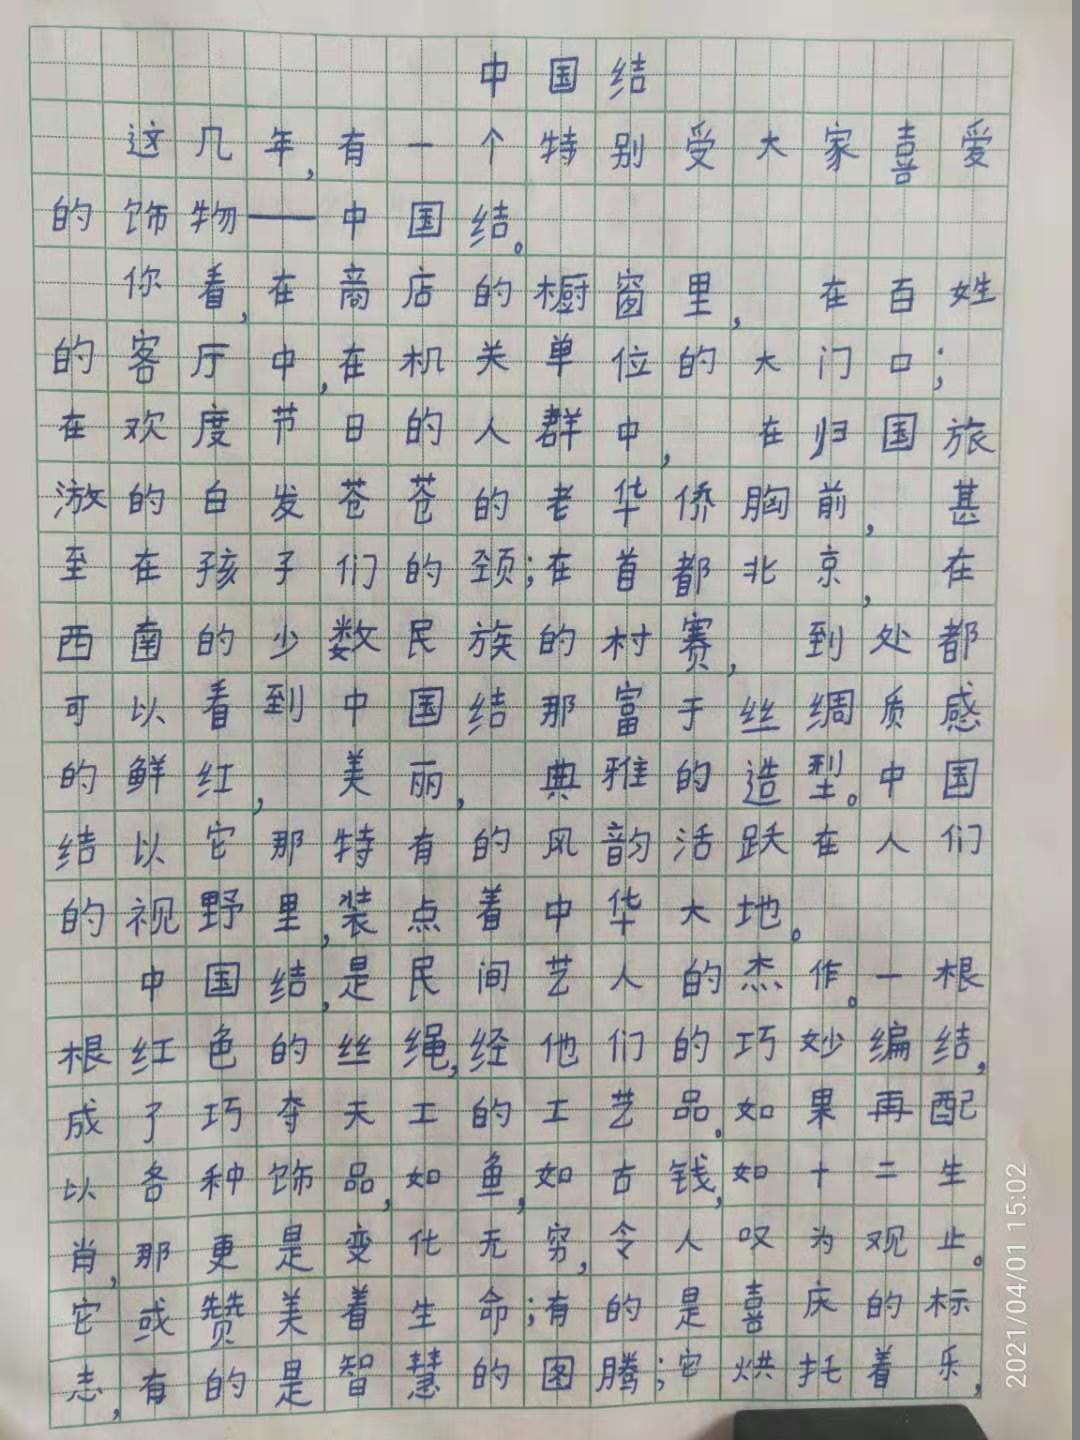 中国结
这几年,有一个特别受大家喜爱
的饰物——中国结。
你看,在商店的橱窗里,在百姓
的客厅中,在机关单位的大门口;
在欢度节日的人群中,在归国旅
游的白发苍苍的老华侨胸前,甚
至在孩子们的颈;在首都北京,在
西南的少数民族的村赛,到处都
可以看到中国结那富于丝绸质感
的鲜红,美丽,典雅的造型。中国
结以它那特有的风韵活跃在人们
的视野里,装点着中华大地。
中国结,是民间艺人的杰作。一根
根红色的丝绳,经他们的巧妙编结,
成了巧夺天工的工艺品。如果再配
以各种饰品,如鱼,如古钱,如十二生
肖,那更是变化无穷,令人叹为观止。
它或赞美着生命;有的是喜庆的标
志,有的是智慧的图腾;它烘托着乐,
2021/04/01 15:02